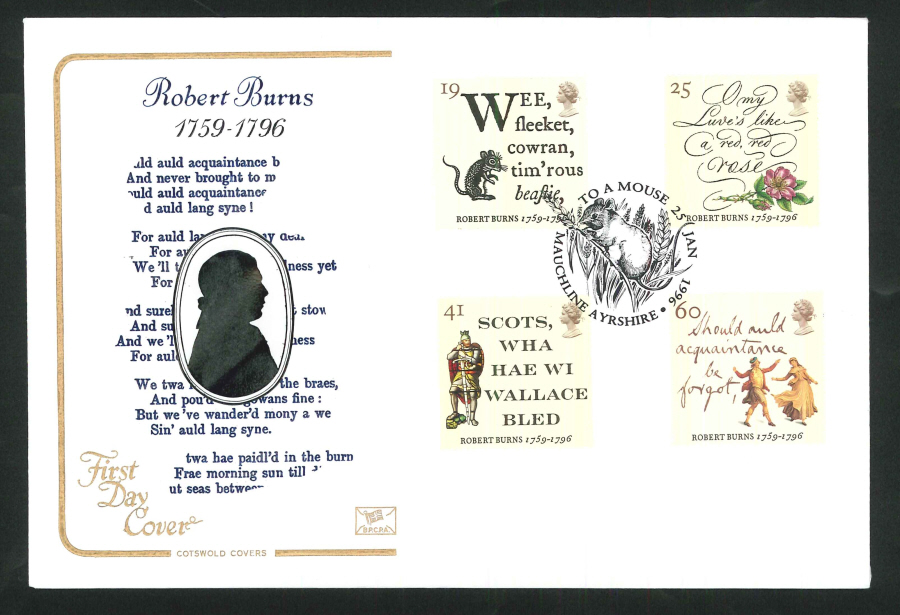 Robert Burns
1759-1796
uld auld acquaintance b
And never brought to m
uld auld acquaintance
d auld lang syne!
For auld la ay
For a
We'll t ness yet
For
nd sure stow
And su
And we'll ness
For aul
We twa the braes,
And pou'd gowans fine:
But we've wander'd mony a we
Sin' auld lang syne.
twa hae paidl'd in the burn
Frae morning sun till di
ut seas between
First
Day
Cover
COTSWOLD COVERS
BFCPA
19
WEE,
fleeket,
cowran,
tim'rous
beastie,
ROBERT BURNS 1759-1796
25
O my
Luve's like
a red, red
rose
ROBERT BURNS 1759-1796
TO A MOUSE 25 JAN 1996
MAUCHLINE AYRSHIRE •
41
SCOTS,
WHA
HAE WI
WALLACE
BLED
ROBERT BURNS 1759-1796
60
Should auld
acquaintance
be
forgot,
ROBERT BURNS 1759-1796